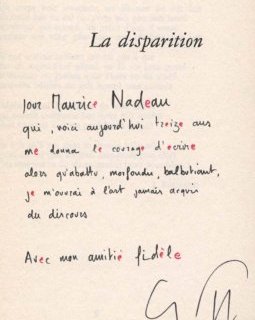 La disparition
pour Maurice Nadeau
qui, voici aujourd'hui treize ans
me donna le courage d'écrire
alors qu'abattu, morfondu, balbutiant,
je m'ouvrais à l'art jamais acquis
du discours
Avec mon amitié fidèle